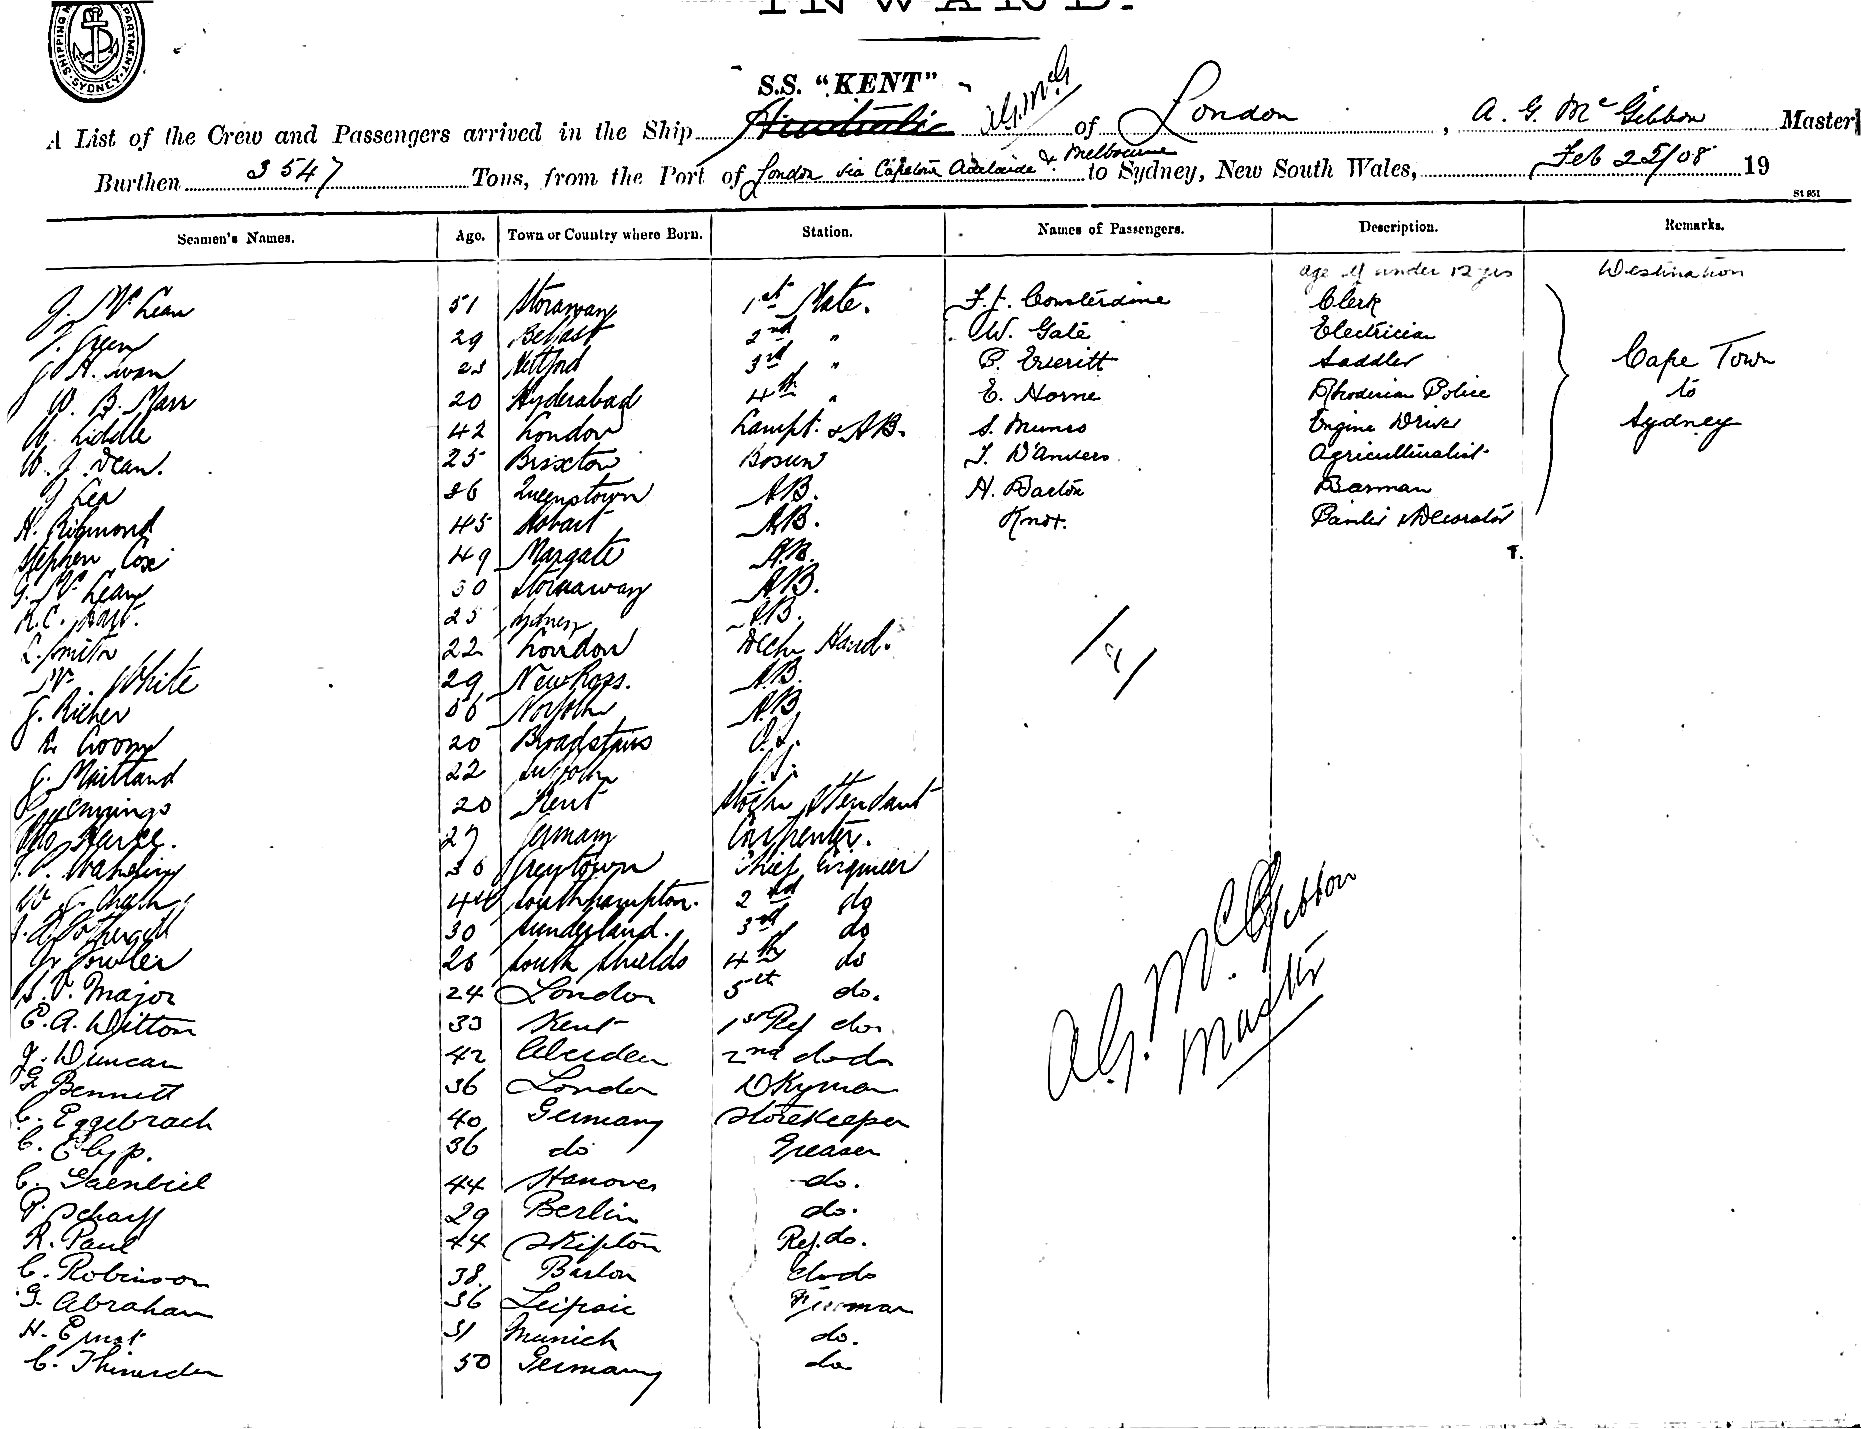 INWARD.
SHIPPING DEPARTMENT SYDNEY
S.S. "KENT"
A List of the Crew and Passengers arrived in the Ship A.G. McG of London, A. G. McGibbon Master
Burthen 3547 Tons, from the Port of London via Capetown Adelaide & Melbourne to Sydney, New South Wales, Feb 25/08 19
St 851
Seamen's Names. Age. Town or Country where Born. Station. Names of Passengers. Description. Remarks.
age if under 12 yrs Destination
J. McLean 51 Stornaway 1st Mate. F. J. Consterdine Clerk
J. Green 29 Belfast 2nd " W. Gate Electrician
23 3rd " P. Everitt Saddler Cape Town
W. B. Marr 20 Hyderabad 4th " E. Horne Rhodesian Police to
W. Liddle 42 London Lampt. & AB. S. Munro Engine Driver Sydney
W. J. Dean. 25 Brixton Bosun D'Anvers Agriculturalist
J. Lea 26 Queenstown AB. H. Barton Barman
H. Richmond 45 Hobart AB. Knox. Painter & Decorator
Stephen Cox 49 Margate AB.
McLean 30 Stornaway AB.
25 Sydney AB.
L. Smith 22 London Deck Hand.
White 29 New Ross. AB.
J. Richer Norfolk AB
20 Broadstairs O.S.
J. Maitland 22 Suffolk O.S.
Jennings 20 Kent Stock Attendant
27 Germany Carpenter.
Greytown Chief Engineer
44 Southampton. 2nd do
30 Sunderland. 3rd do
Fowler 26 South Shields 4th do
Major 24 London 5th do.
E. A. Ditton 33 Kent 1st Ref do.
J. Duncan 42 Aberdeen 2nd do do
F. Bennett 36 London Dkyman
C. Eggebrach 40 Germany Storekeeper
C. 36 do Greaser
C. 44 Hanover do.
P. Scharff 29 Berlin do.
R. Paul 44 Skipton Ref. do.
C. Robinson 38. Barton do do
G. Abraham 36 Leipsic Fireman
H. Ernst 31 Munich do.
C. 50 Germany do
A.G. McGibbon
Master